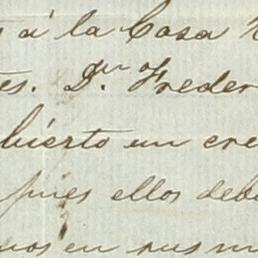 á la Casa
es. D.ⁿ Freder
bierto un cre
pues ellos deb
nos en sus m